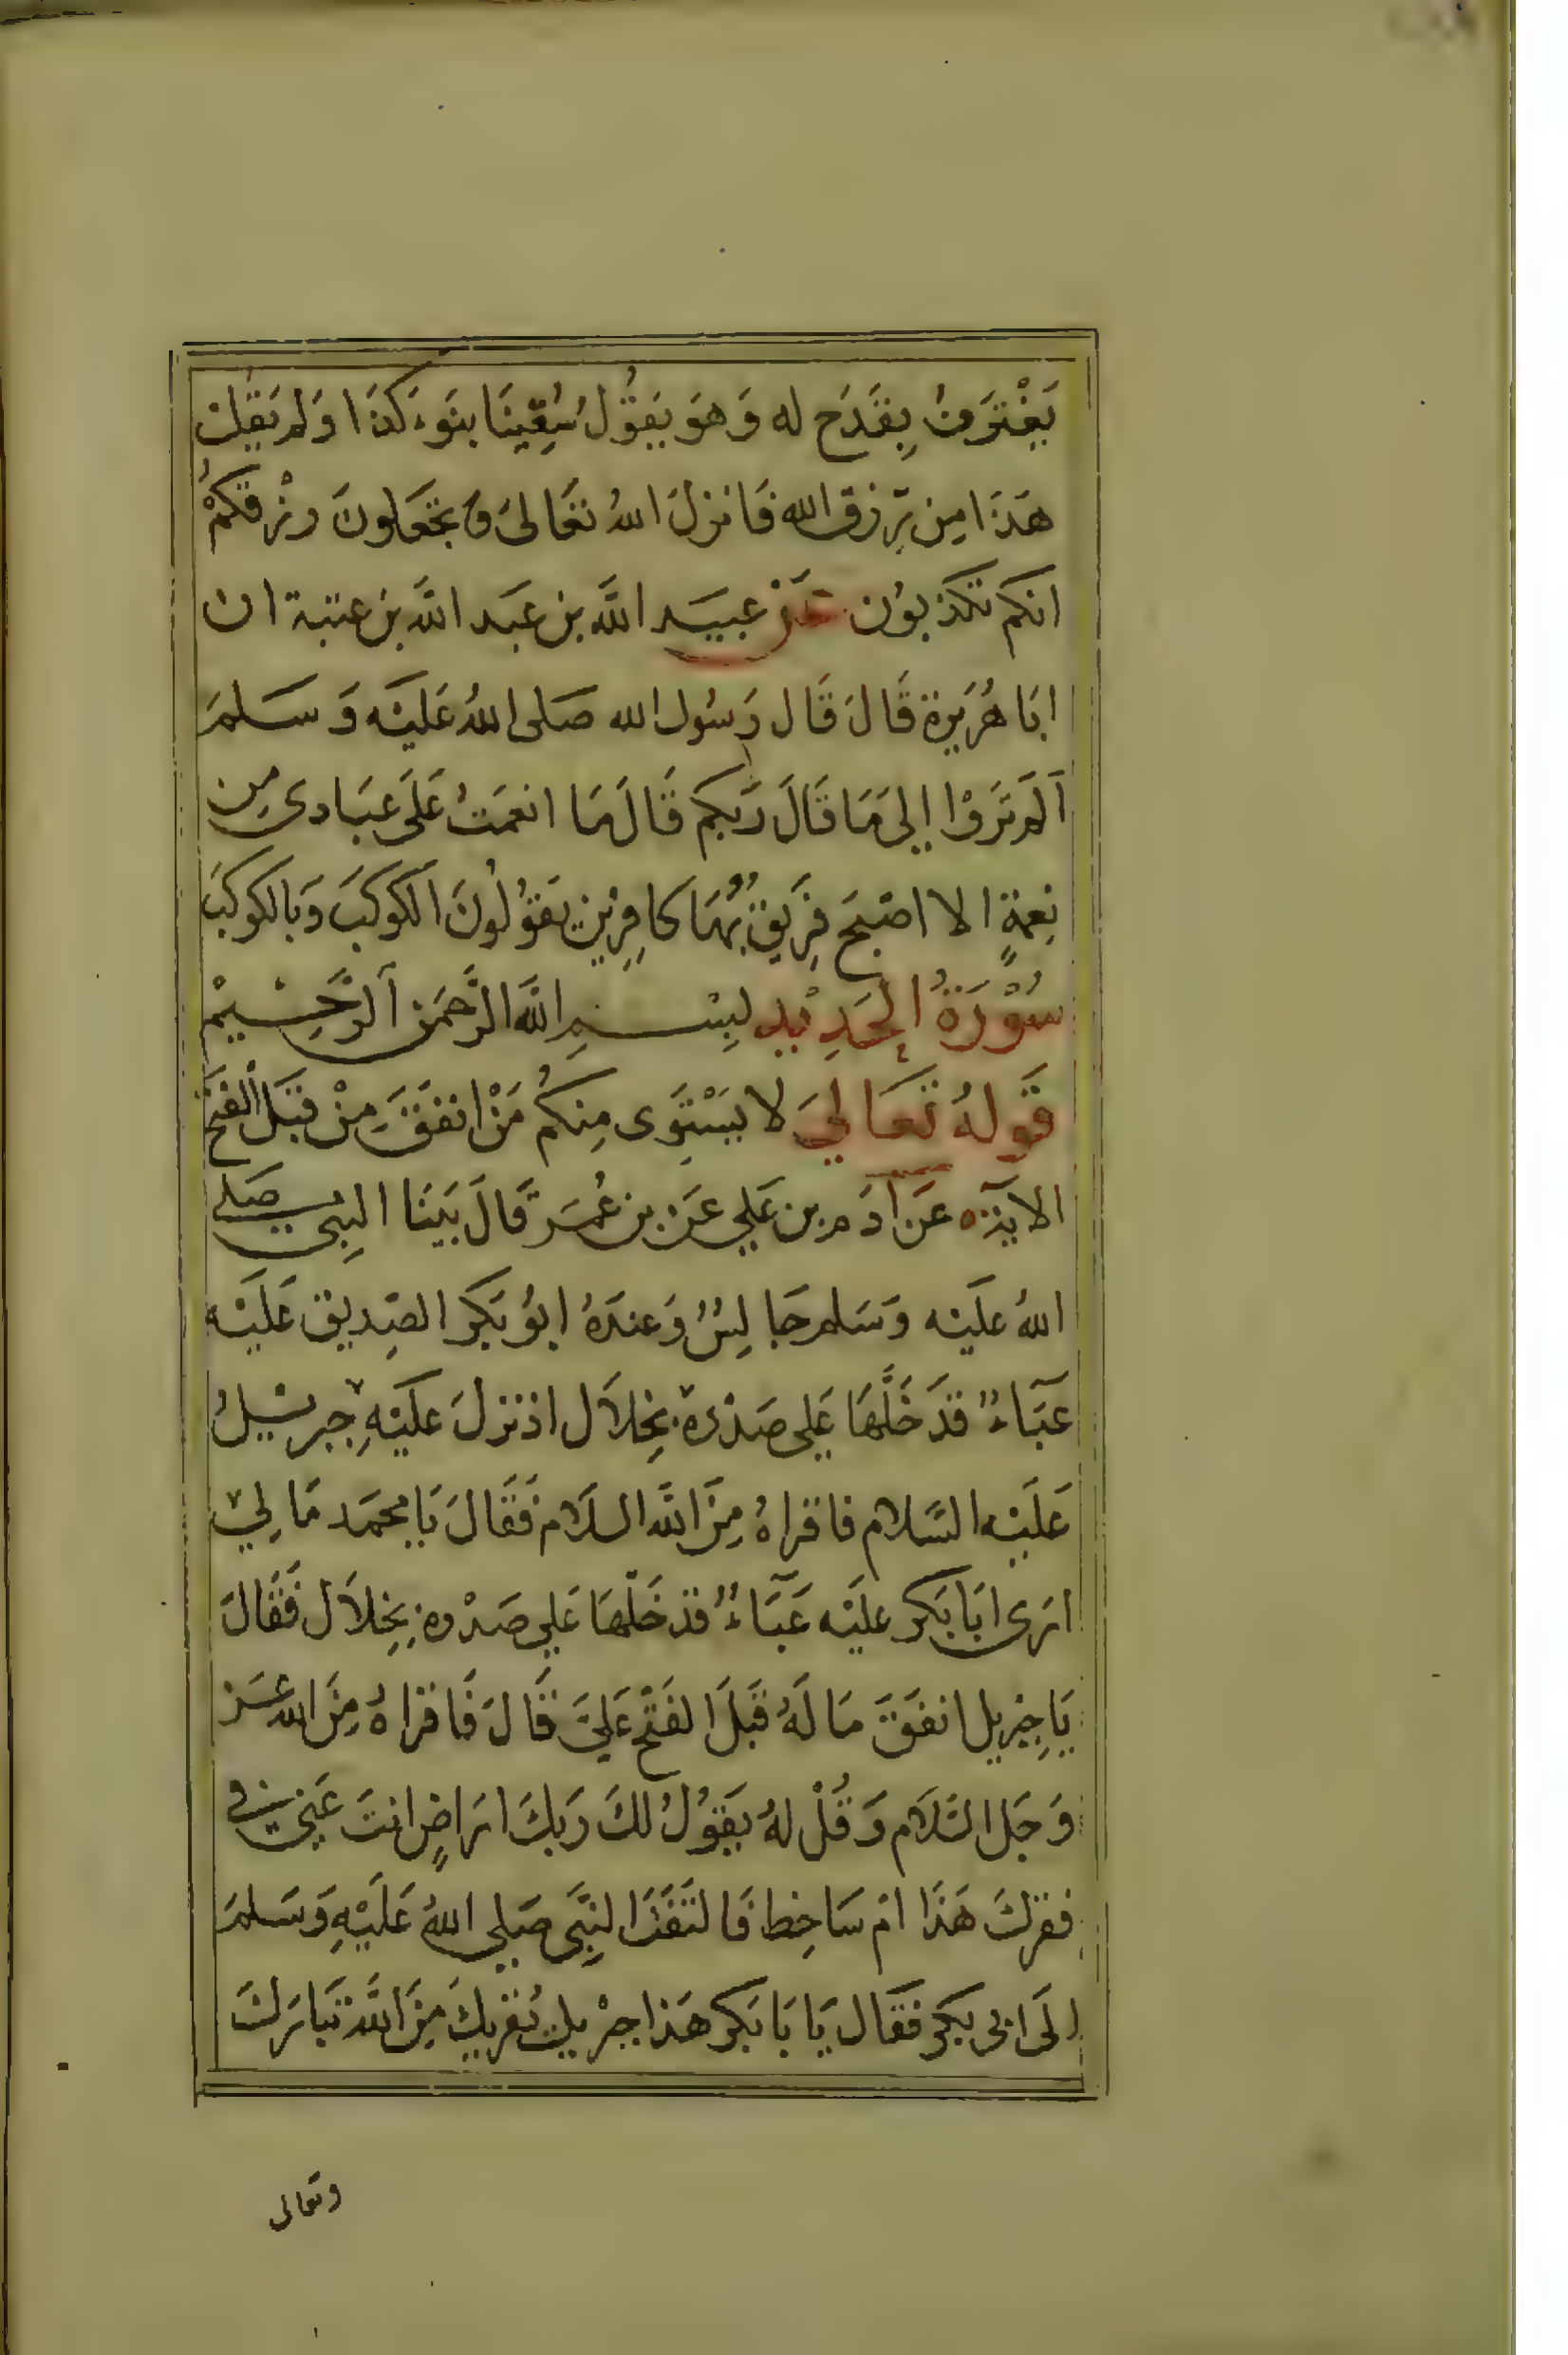 يَغْتَرِفُ بِقَدَحٍ له وَهوَ يَقُولُ سُقِينَا بنَوء كَذَا وَلم يَقُل
هَذَا مِن رّزق الله فَانزلَ اللهُ تعَالىَ وَتجعَلونَ رزْقكمْ
انكم تكذبون عَن عبيَد اللَّه بن عَبَد اللَّه بن عتبة ان
ابَا هُرَيرة قَالَ قَال رَسُول الله صَلى اللهُ عَليَه وَسَلمَ
اَلم تَرَوْا إلى مَا قَالَ رَبكم قَالَ مَا انعمَتُ عَلَى عِبَادى مِن
نِعمةٍ الا اصْبَحَ فِرَيقٌ بهَا كافِرِين يَقوُلُونَ الكَوكَبَ وَبالكوكبَ
سُوْرَةُ الحَدِيْد لبِسْمِ اللَّه الرَّحمَن الرَّحِيْم
قَولهُ تَعَالىَ لا يَسْتَوِى مِنكُم مَنْ انفَقَ مِنْ قَبَل الفتح
الايَة عَن آدَم بن عَلِي عَن بن عُمَر قَالَ بَينَا النبِى صَلى
اللهُ عَليَه وَسَلم جَالِسٌ وَعندَهُ ابوُ بَكر الصِديق عَلَيَه
عَبَاءٌ قَد خَلَّهَا عَلى صَدْره بِخِلاَل اذ نزلَ عَليَهِ جبرئيلُ
عَلَيْه السَّلام فاقراهُ مِنَ اللَّه السلاَم فَقَالَ يَا محمَد مَا لِي
ارَى ابَا بَكر عليَه عَبَاءٌ قد خَلّهَا عَلي صَدْره بِخِلاَل فَقَالَ
يَا جِبْريل انفَقَ مَالَهُ قَبَلَ الفَتْح عَليَّ قَالَ فَاقراهُ مِنَ الله عَز
وَجَل السَّلاَم وَقُلْ لهُ يَقوُلُ لكَ رَبكَ ارَاضٍ انتَ عَنِى في
فقرِكَ هَذَا امْ سَاخِط فَالتَفَتَ النبِىَ صَلى اللهُ عَلَيْهِ وَسَلمَ
إلَى ابى بَكر فَقَال يَا بَا بَكر هَذا جبْريل يُقريكَ مِنَ اللَّه تبَارَكَ
وتعالى